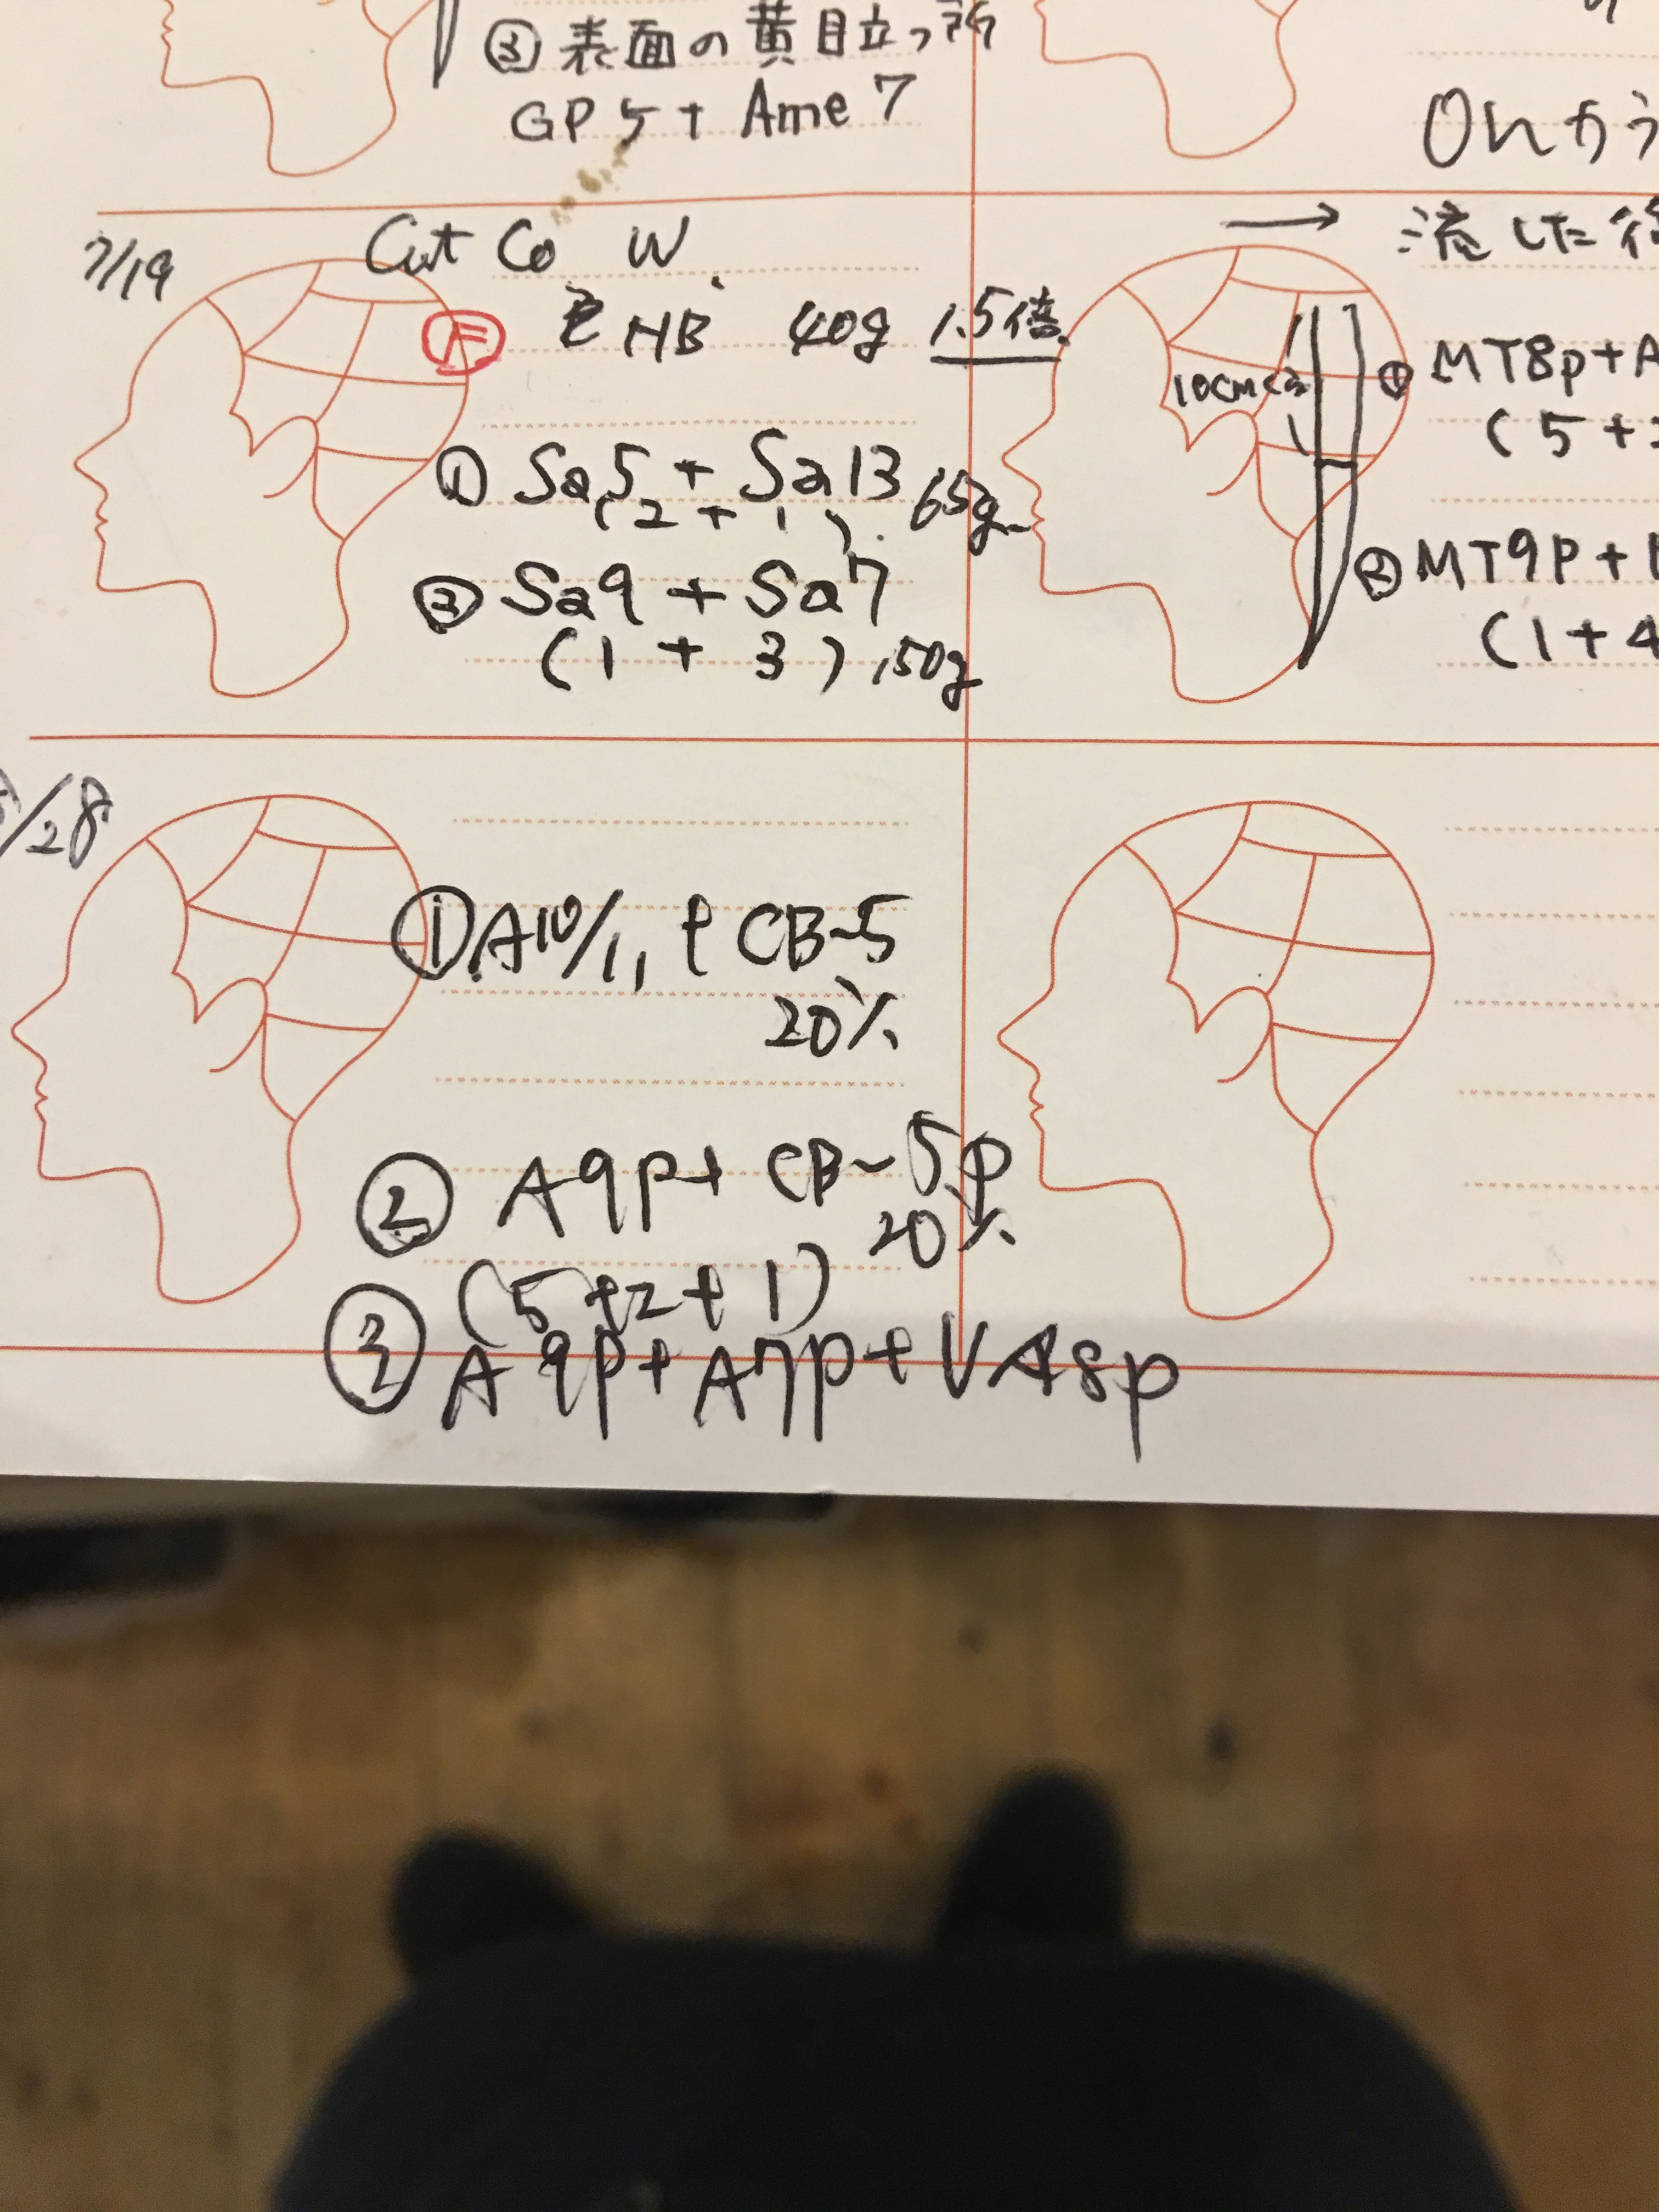 ③ 表面の黄目立つ所
GP5 + Ame 7
Onカラ
7/19
Cut Co W
HB 40g 1.5倍
① Sa5 + Sa13 65g
(2 + 1)
② Sa9 + Sa7
(1 + 3) 150g
→ 流した後
10cmくらい
① MT8p+A
(5+
② MT9P+
(1+4
/28
① A10/11 + CB-5
20%
② A9p+ CB-5p
20%
(5+2+1)
③ A9p+A7p+VA8p